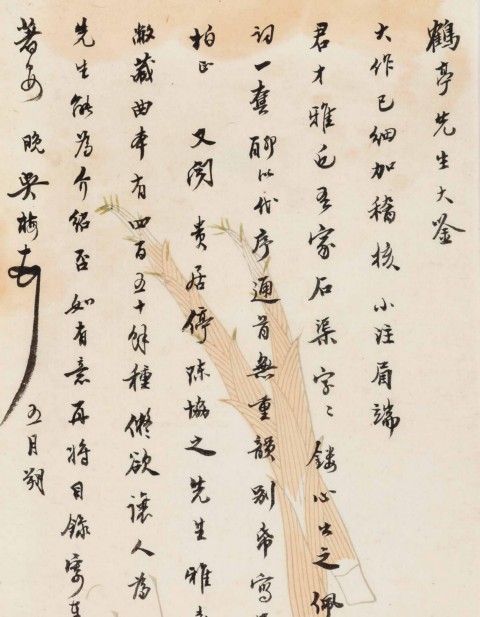 鶴亭先生大鋻
大作已細加稽核小注眉端
君才雅近吾家石渠字〻鏤心出之佩
詞一套聊以代序通首無重韻別帋寫
拍正 又聞 貴居停陳協之先生雅
敝藏曲本有四百五十餘種儗欲讓人為
先生能為介紹否如有意再將目錄寄
著安 晚吳梅 五月朔